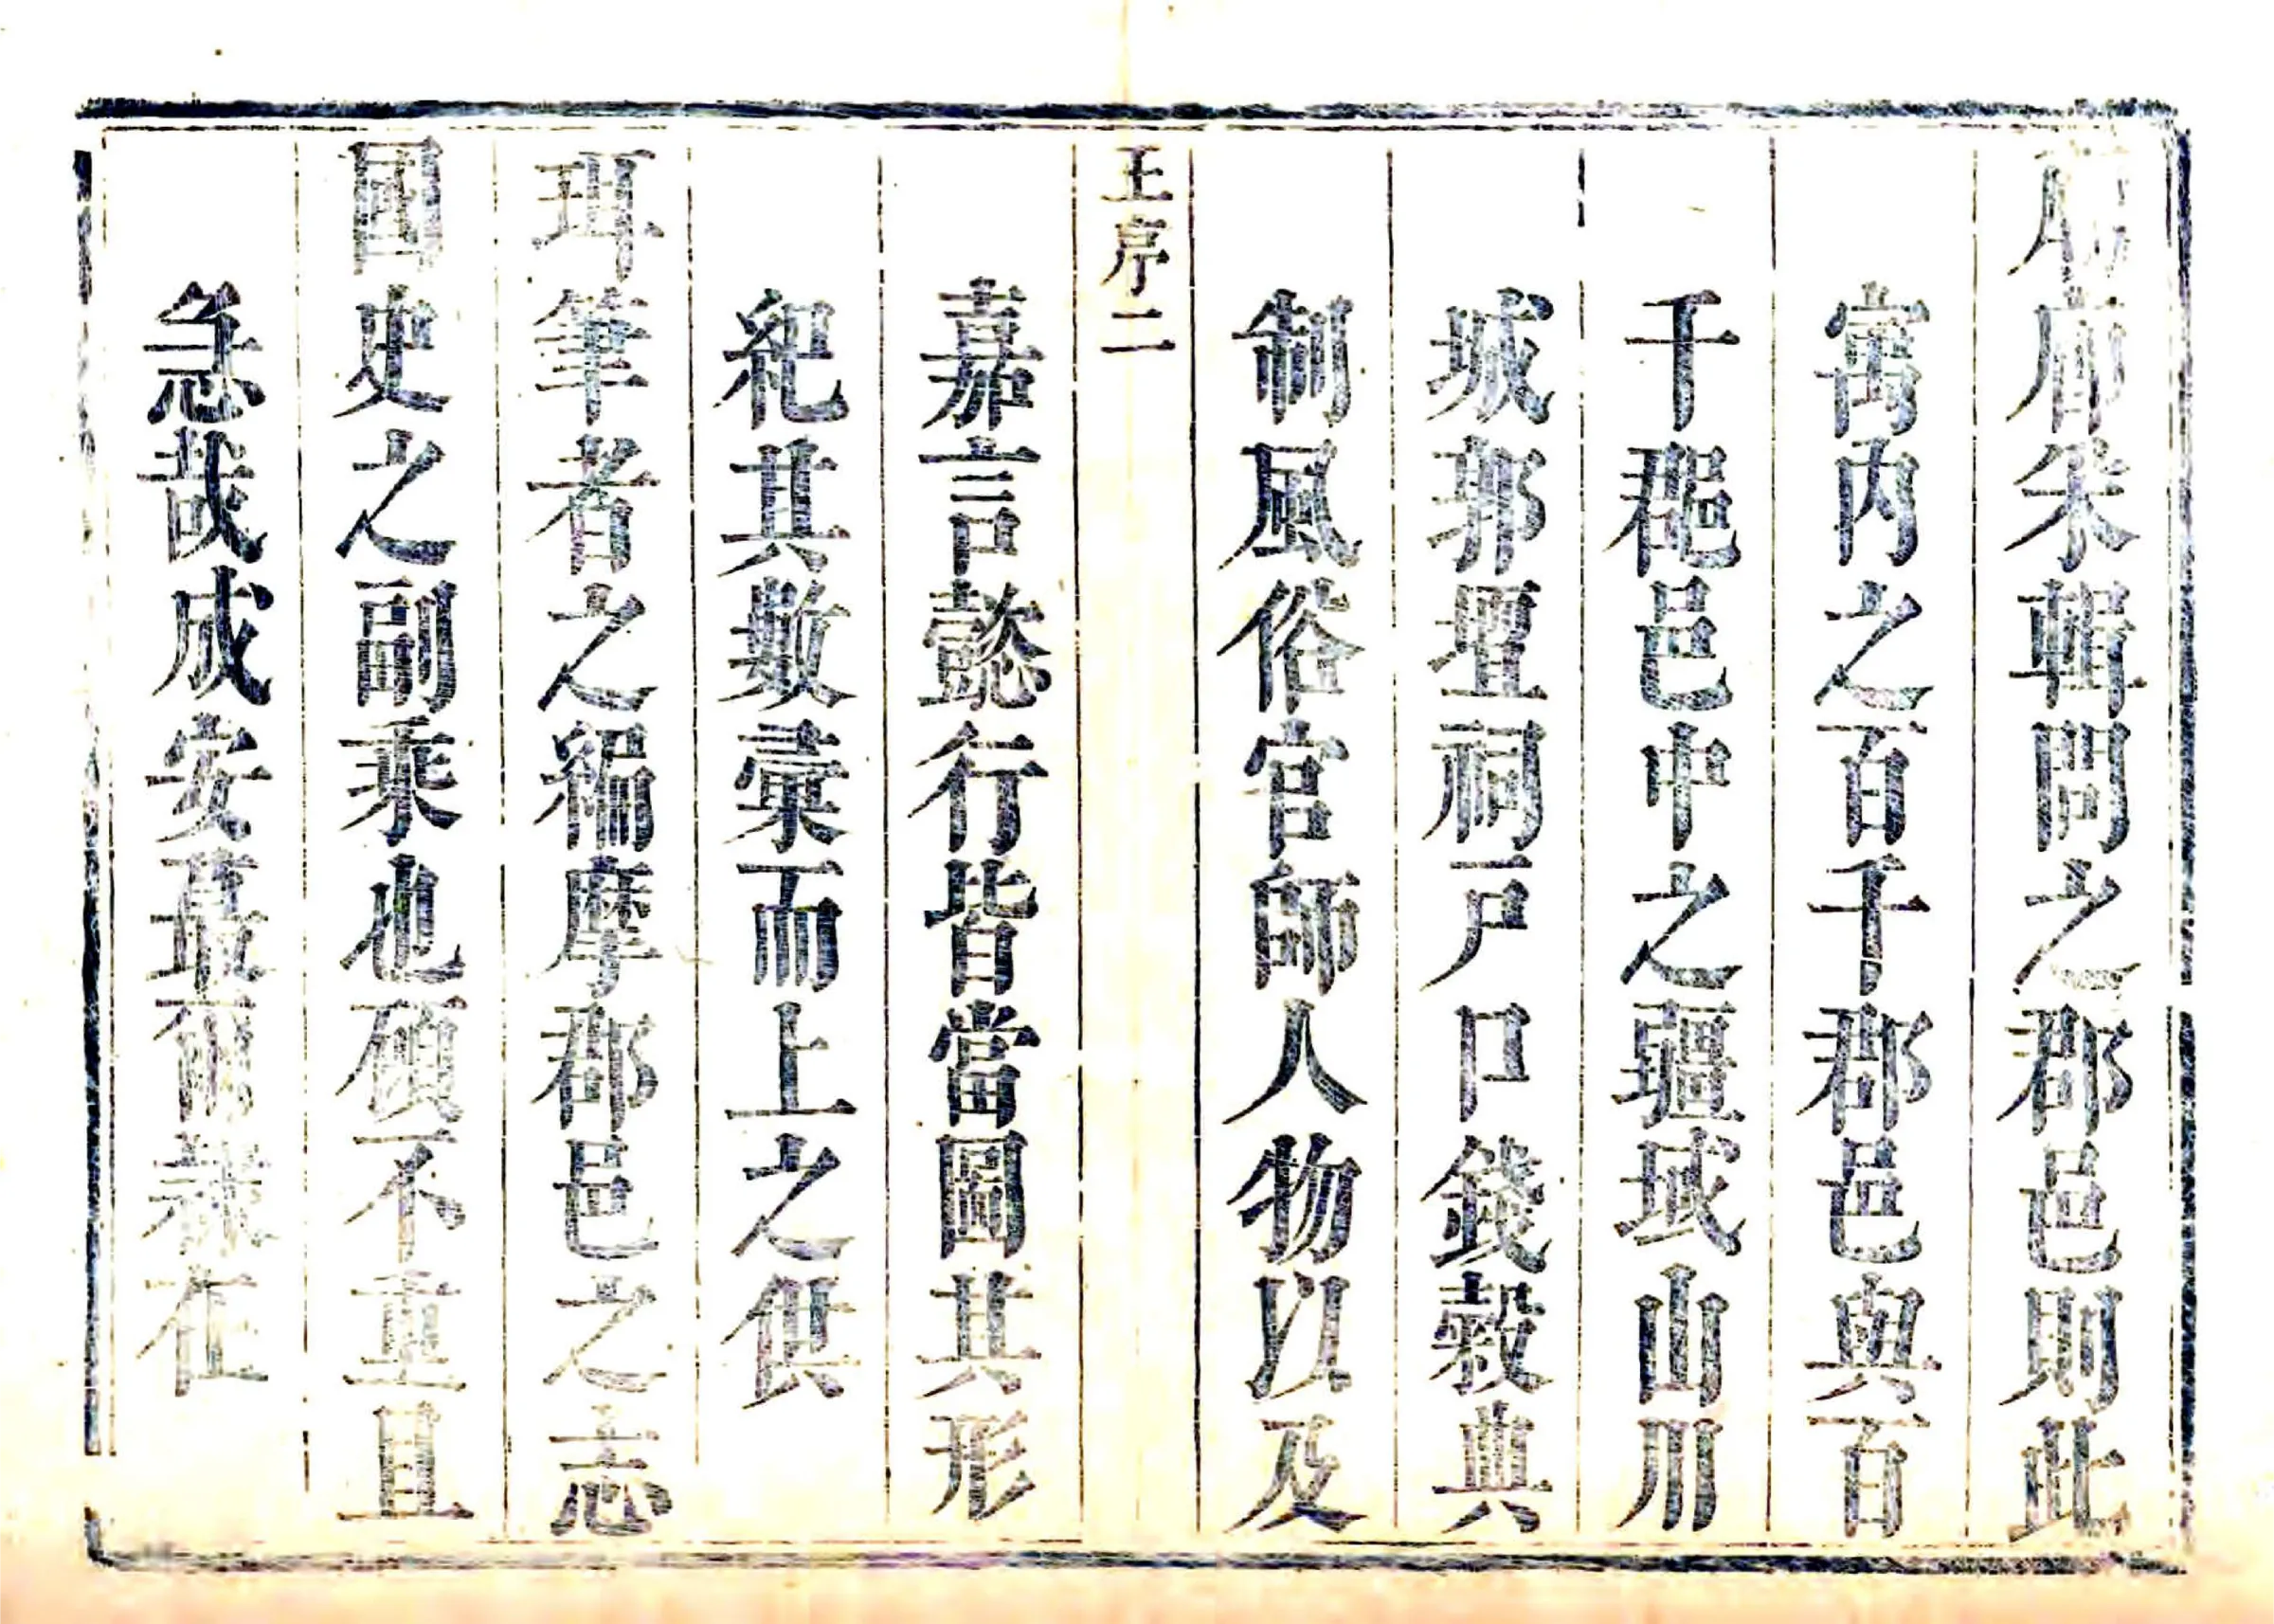 采輯問之郡邑則此
寓内之百千郡邑與百
千郡邑中之疆域山川
城郭壇祠戸口錢穀典
制風俗官師人物以及
王序二
嘉言懿行皆當圖其形
紀其數彙而上之供
珥筆者之編摩郡邑之志
國史之副乘也顧不重且
急哉成安蕞爾隸在